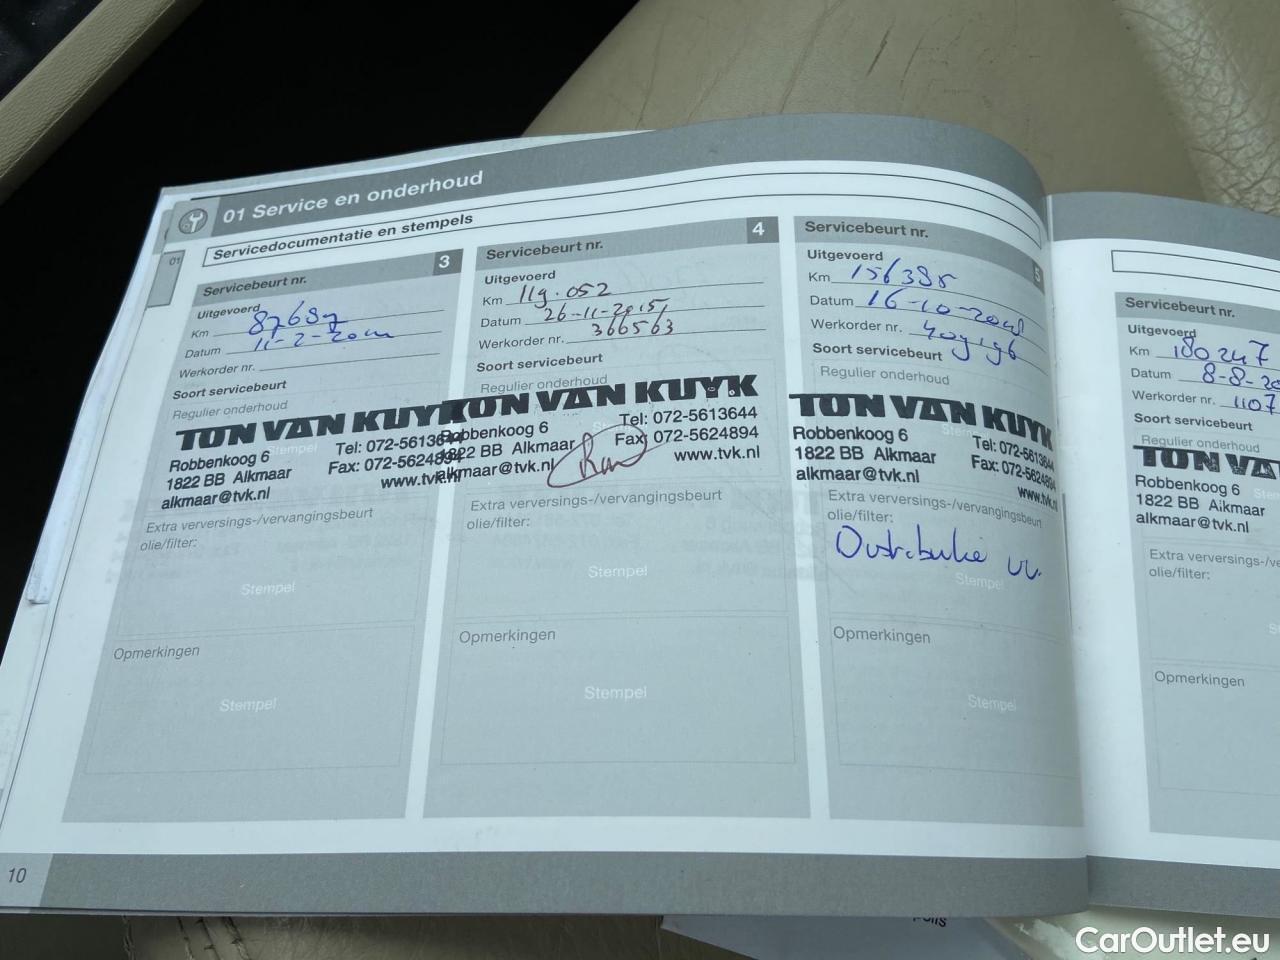 01 Service en onderhoud
Servicedocumentatie en stempels
01
Servicebeurt nr. 3
Uitgevoerd
Km
Datum 11-2-20
Werkorder nr.
Soort servicebeurt
Regulier onderhoud
TON VAN KUYK
Robbenkoog 6 Tel: 072-5613644
1822 BB Alkmaar Fax: 072-5624894
alkmaar@tvk.nl www.tvk.nl
Extra verversings-/vervangingsbeurt
olie/filter:
Stempel
Opmerkingen
Stempel
Servicebeurt nr. 4
Uitgevoerd
Km 119.052
Datum 26-11-2015
Werkorder nr. 366563
Soort servicebeurt
Regulier onderhoud
TON VAN KUYK
Robbenkoog 6 Tel: 072-5613644
1822 BB Alkmaar Fax: 072-5624894
alkmaar@tvk.nl www.tvk.nl
Extra verversings-/vervangingsbeurt
olie/filter:
Stempel
Opmerkingen
Stempel
Servicebeurt nr. 5
Uitgevoerd
Km 156395
Datum 16-10-20
Werkorder nr. 409196
Soort servicebeurt
Regulier onderhoud
TON VAN KUYK
Robbenkoog 6 Tel: 072-5613644
1822 BB Alkmaar Fax: 072-5624894
alkmaar@tvk.nl www.tvk.nl
Extra verversings-/vervangingsbeurt
olie/filter:
Distributie vv.
Stempel
Opmerkingen
Stempel
Servicebeurt nr.
Uitgevoerd
Km 180247
Datum 8-8-20
Werkorder nr. 1107
Soort servicebeurt
Regulier onderhoud
TON VA
Robbenkoog 6
1822 BB Alkmaar
alkmaar@tvk.nl
Extra verversings-/ve
olie/filter:
Opmerkingen
10
CarOutlet.eu